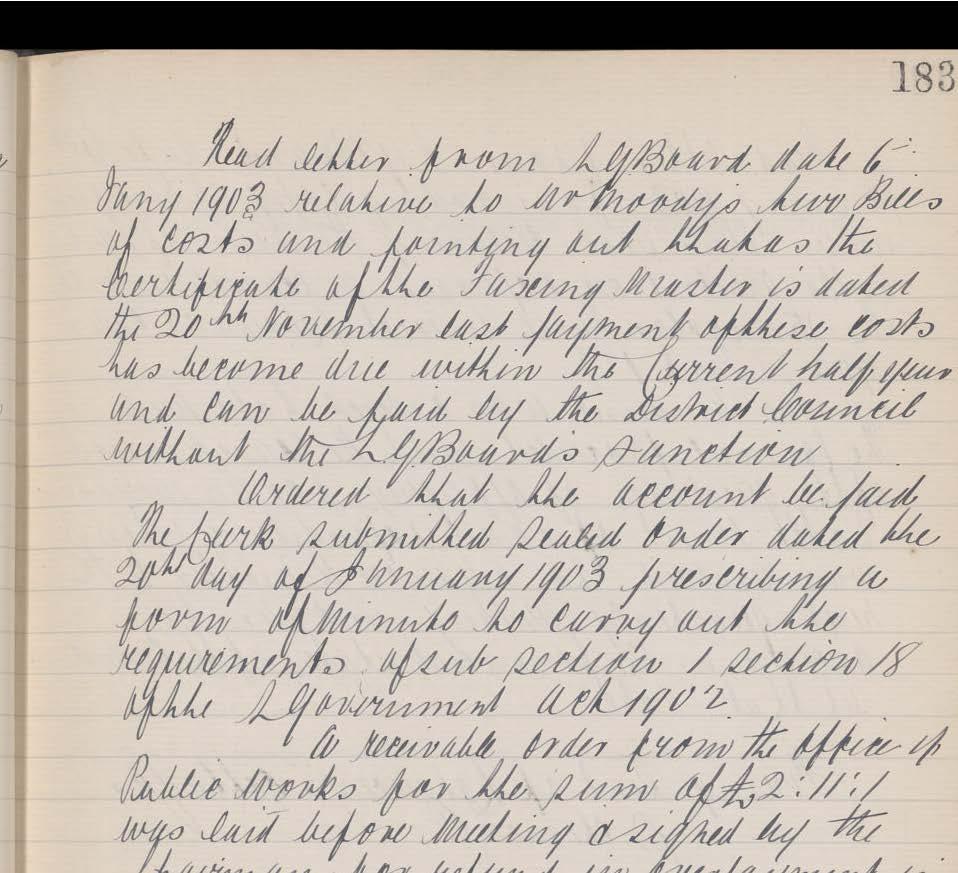 183
Read letter from LGBoard date 6th
Jany 1903 relative to Mr Moody's two Bills
of costs and pointing out that as the
Certificate of the Taxing Master is dated
the 20th November last payment of these costs
has become due within the Current half year
and can be paid by the District Council
without the LGBoard's sanction
Ordered that the account be paid
The Clerk submitted sealed order dated the
20th day of January 1903 prescribing a
form of Minute to carry out the
requirements of sub section 1 section 18
of the LGovernment Act 1902
A receivable order from the office of
Public Works for the sum of £2:11:1
was laid before Meeting & signed by the
Chairman for refund in overpayment